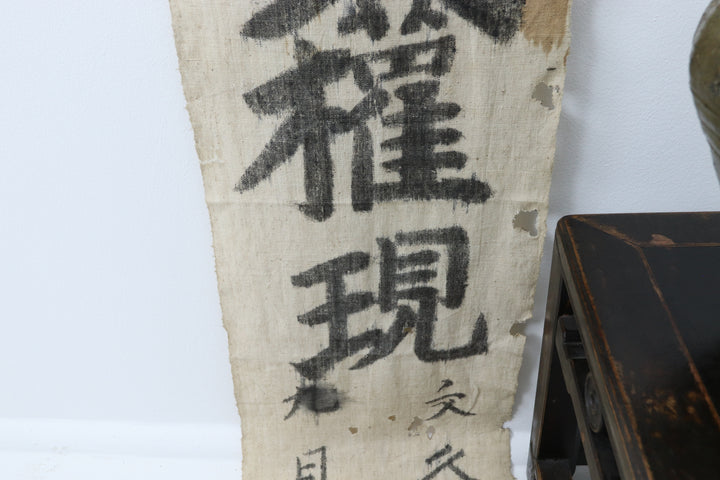 權現
文久
九月